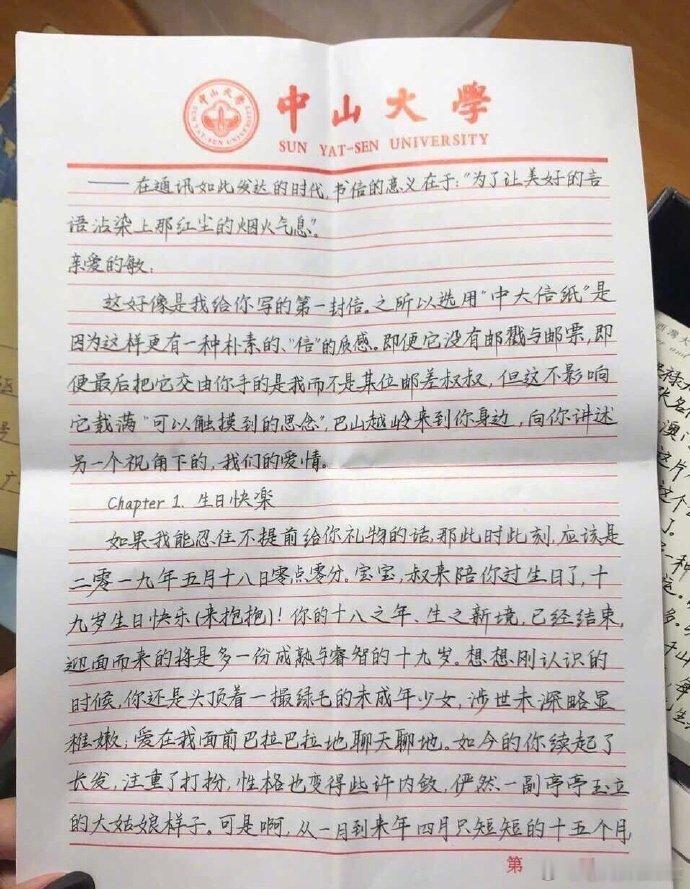 中山大學
SUN YAT-SEN UNIVERSITY
——在通讯如此发达的时代,书信的意义在于:"为了让美好的言
语沾染上那红尘的烟火气息"。
亲爱的敏:
这好像是我给你写的第一封信。之所以选用"中大信纸"是
因为这样更有一种朴素的、"信"的质感。即便它没有邮戳与邮票,即
便最后把它交由你手的是我而不是某位邮差叔叔,但这不影响
它载满"可以触摸到的思念",巴山越岭来到你身边,向你讲述
另一个视角下的,我们的爱情。
Chapter 1. 生日快樂
如果我能忍住不提前给你礼物的话,那此时此刻,应该是
二零一九年五月十八日零点零分。宝宝,叔来陪你过生日了,十
九岁生日快乐(来抱抱)!你的十八之年、生之新境,已经结束,
迎面而来的将是多一份成熟与睿智的十九岁。想想刚认识的
时候,你还是头顶着一撮绿毛的未成年少女,涉世未深略显
稚嫩;爱在我面前巴拉巴拉地聊天聊地。如今的你续起了
长发,注重了打扮,性格也变得些许内敛,俨然一副亭亭玉立
的大姑娘样子。可是啊,从一月到来年四月只短短的十五个月,
第